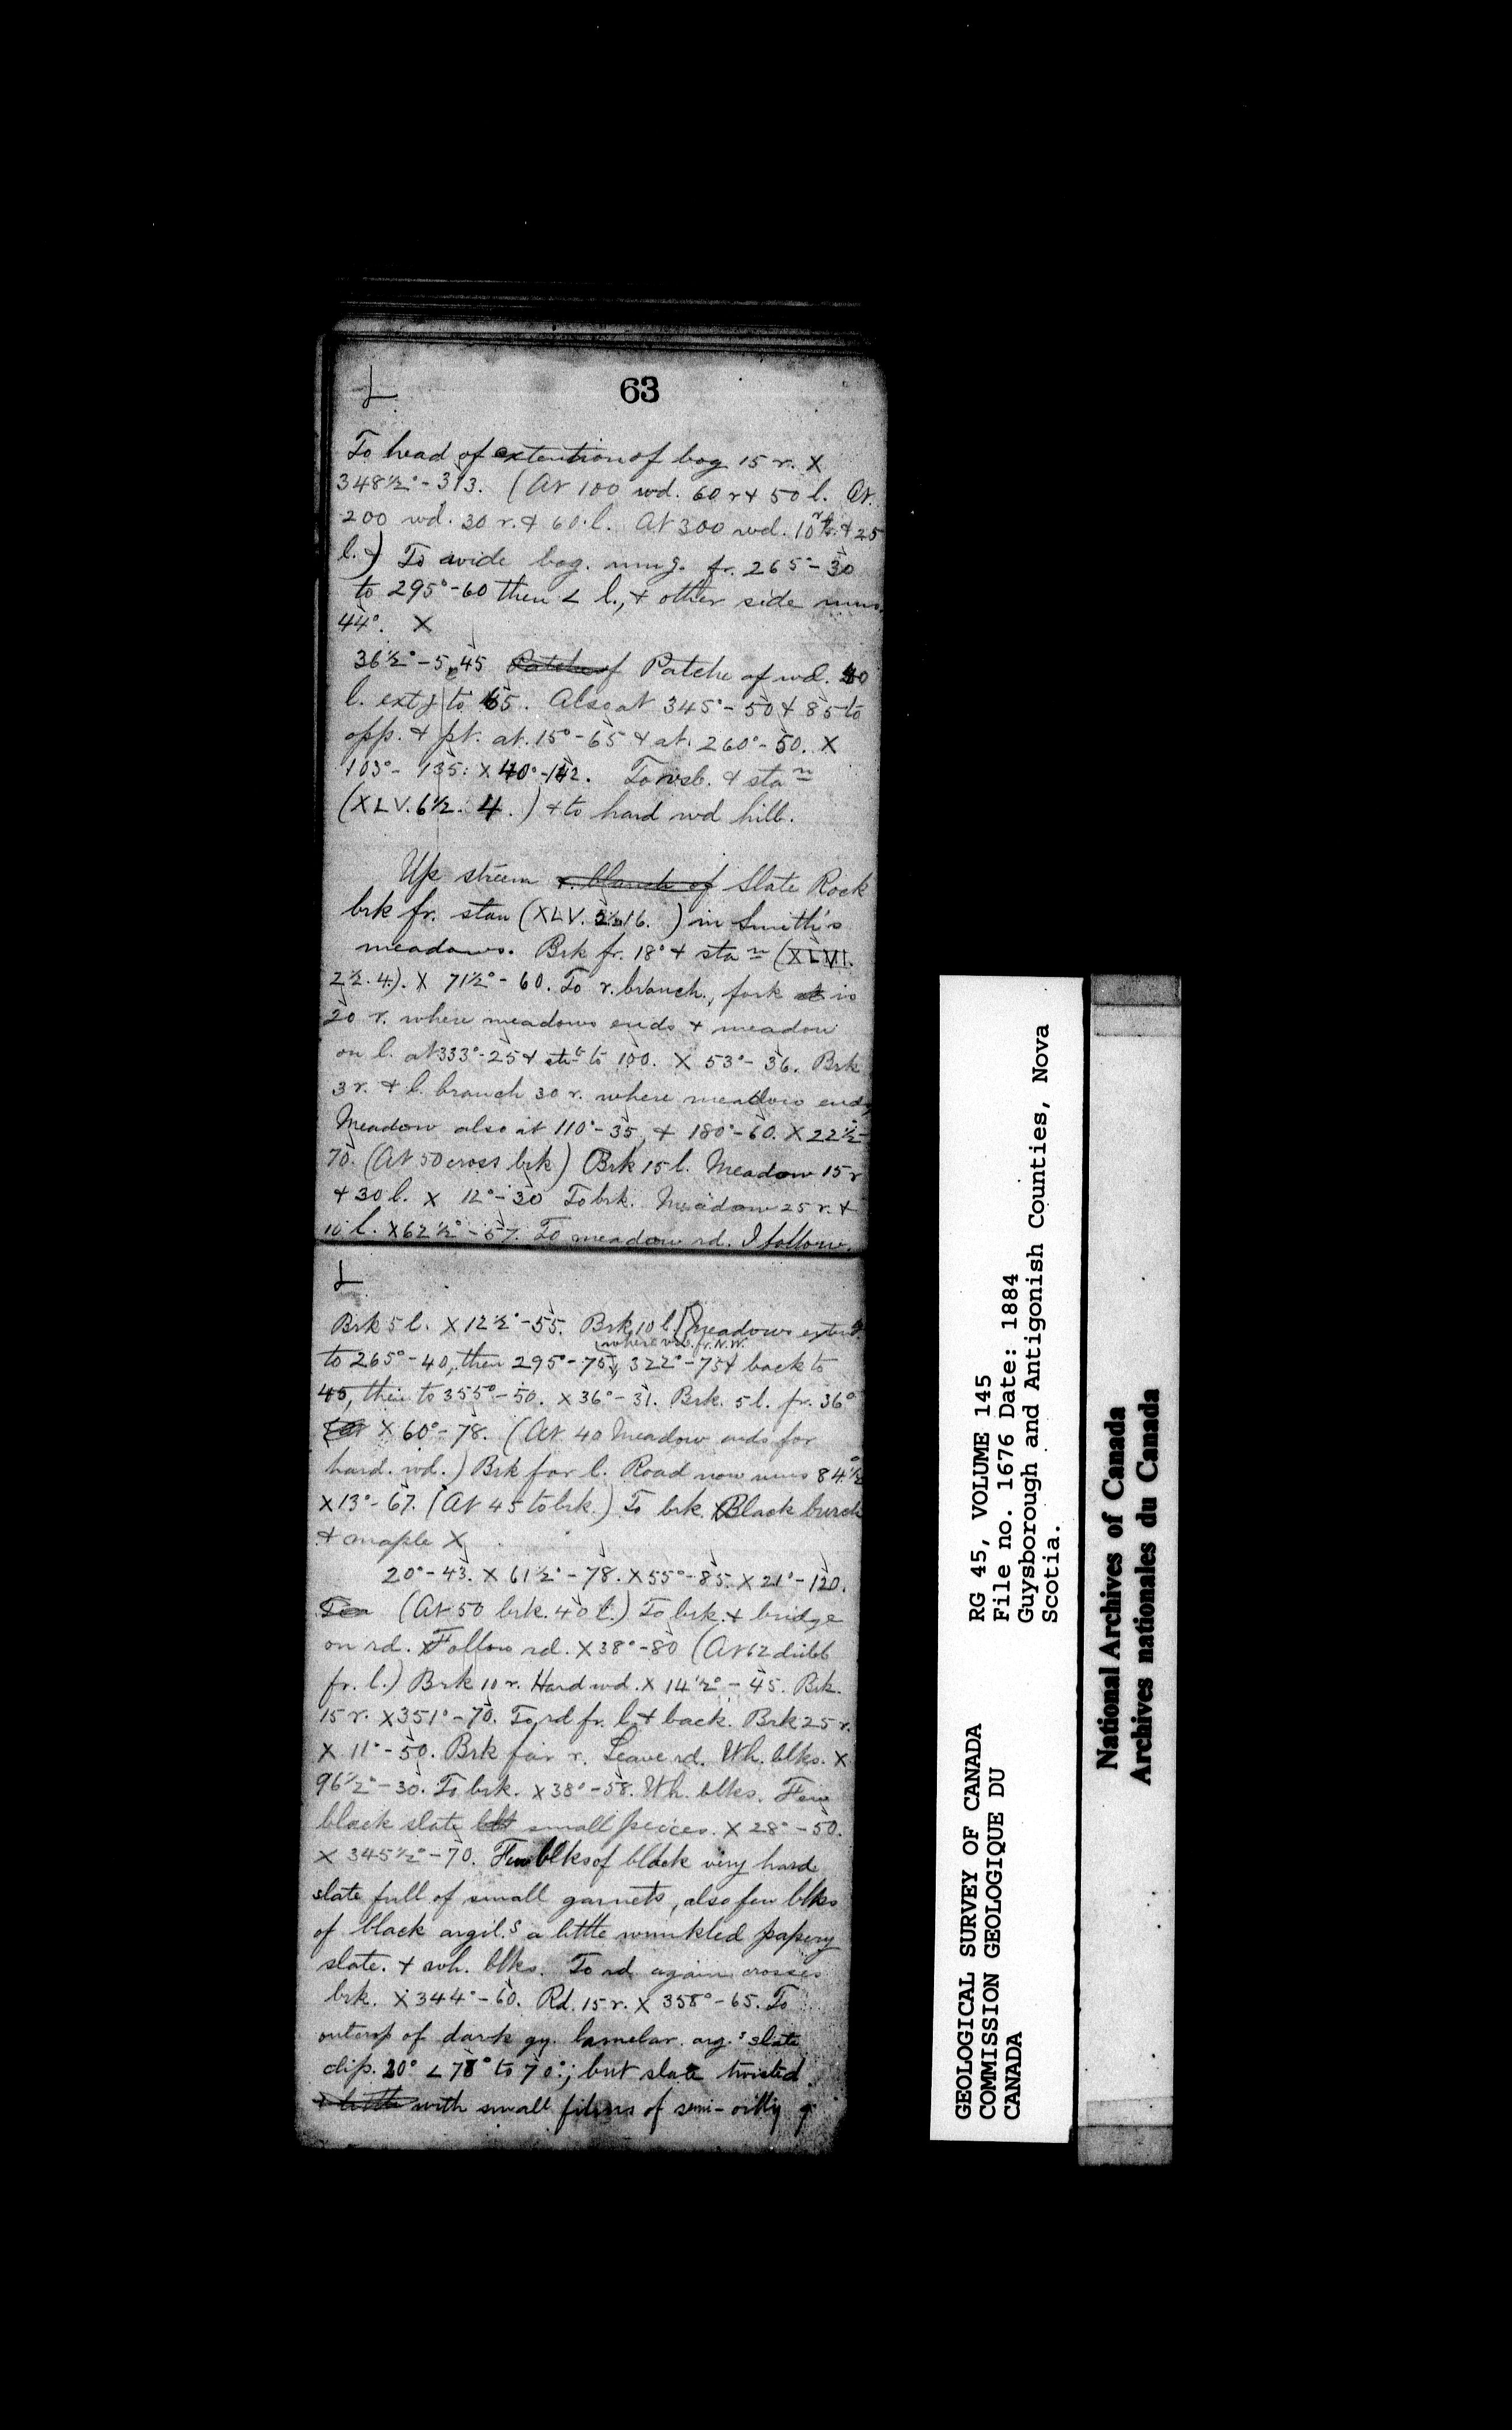 L
63
To head of extention of bog 15 r. X
348½°-313. (At 100 wd. 60 r + 50 l. At
200 wd. 30 r. + 60 l. At 300 wd. 10 r. + 25
l.) To wide bog. runng. fr. 265°-30
to 295°-60 then ∠ l., + other side runs
44°. X
36½°-5,45 Patche of Patche of wd. 40
l. extg to 65. Also at 345°-50 + 85 to
opp. + pt. at 15°-65 + at 260°-50. X
103°-135: X 40°-142. To rsb. + stan
(XLV. 6½. 4.) + to hard wd hill.
Up stream r. blanch of Slate Rock
brk fr. stan (XLV. 2½ 16.) in Smith's
meadows. Brk fr. 18° + stan (XLVI.
2½. 4.). X 71½°-60. To r. branch., fork at is
20 r. where meadows ends + meadow
on l. at 333°-25 + to 100. X 53°-36. Brk
3 r. + l. branch 30 r. where meadow ends
Meadow also at 110°-35, + 180°-60. X 22½°
70. (At 50 cross brk) Brk 15 l. Meadow 15 r
+ 30 l. X 12°-30 To brk. Meadow 25 r. +
10 l. X 62½°-57. To meadow rd. I follow.
L
Brk 5 l. X 12½°-55. Brk 10 l. Meadows extend
where fr. N.W.
to 265°-40, then 295°-75, 322°-75 + back to
45, then to 355°-50. X 36°-31. Brk. 5 l. fr. 36°
X 60°-78. (At 40 Meadow ends for
hard. wd.) Brk far l. Road now runs 84½°
X 13°-67. (At 45 to brk.) To brk. Black burch
+ maple X
20°-43. X 61½°-78. X 55°-85. X 21°-120.
(At 50 brk. 40 l.) To brk. + bridge
on rd. Follow rd. X 38°-80 (At 62 dribb
fr. l.) Brk 10 r. Hard wd. X 14½°-45. Brk.
15 r. X 351°-70. To rd fr. l. + back. Brk 25 r.
X 11°-50. Brk far r. Leave rd. Wh. blks. X
96½°-30. To brk. X 38°-58. Wh. blks. Few
black slate blk small peices. X 28°-50.
X 345½°-70. Few blks of black very hard
slate full of small garnets, also few blks
of black argil.s a little wrinkled papery
slate. + wh. blks. To rd again crosses
brk. X 344°-60. Rd. 15 r. X 358°-65. To
outcrop of dark gy. lamelar. arg.s slate
dip. 20° ∠ 78° to 70°; but slate twisted
+ little with small films of semi-oilly q
GEOLOGICAL SURVEY OF CANADA
COMMISSION GEOLOGIQUE DU
CANADA
RG 45, VOLUME 145
File no. 1676 Date: 1884
Guysborough and Antigonish Counties, Nova
Scotia.
National Archives of Canada
Archives nationales du Canada